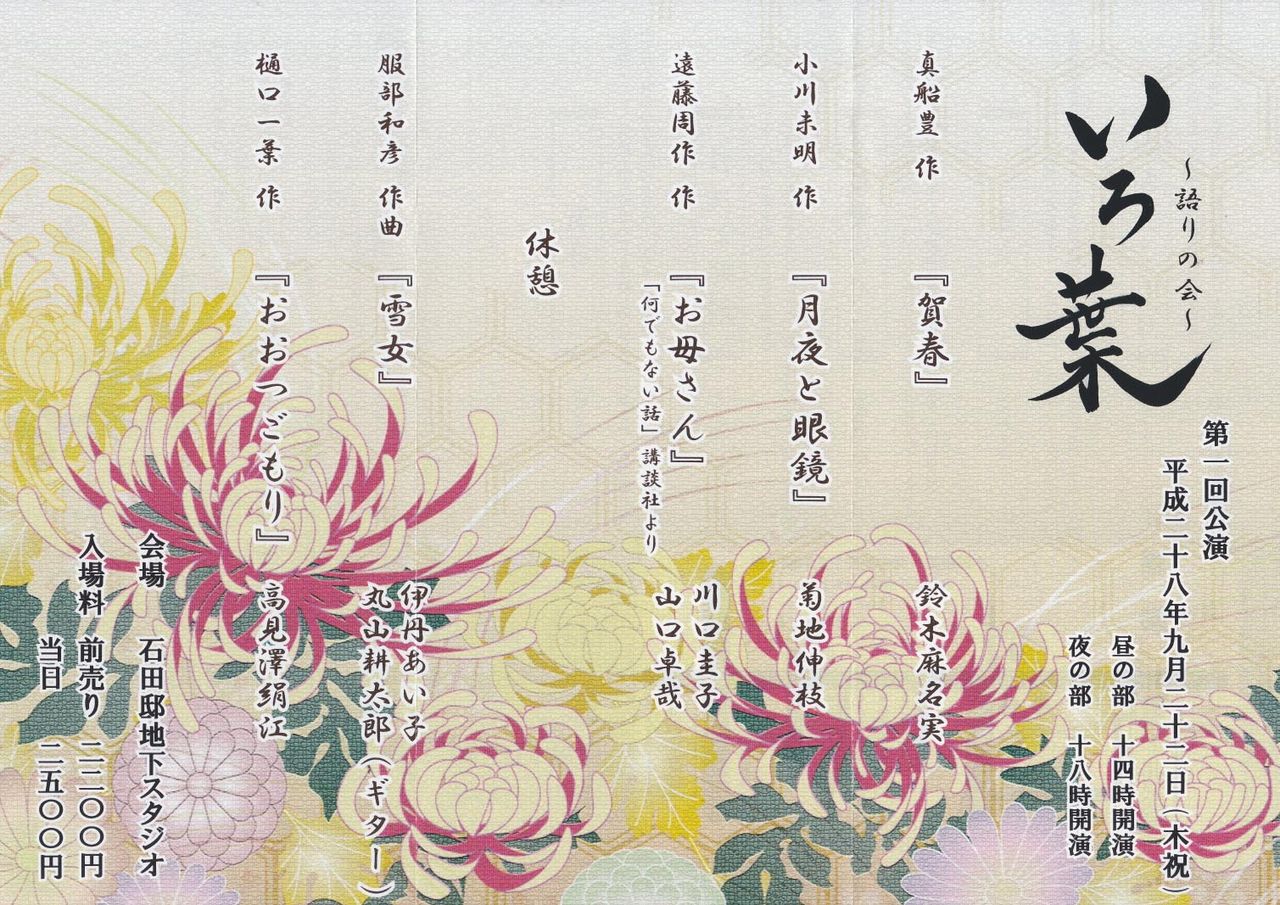 いろ葉
～語りの会～
第一回公演
平成二十八年九月二十二日（木祝）
昼の部 十四時開演
夜の部 十八時開演
真船豊 作 『賀春』 鈴木麻名実
小川未明 作 『月夜と眼鏡』 菊地伸枝
遠藤周作 作 『お母さん』 川口圭子
「何でもない話」講談社より 山口卓哉
休憩
服部和彦 作曲 『雪女』 伊丹あい子
丸山耕太郎（ギター）
樋口一葉 作 『おおつごもり』 高見澤絹江
会場 石田邸地下スタジオ
入場料 前売り 二二〇〇円
当日 二五〇〇円